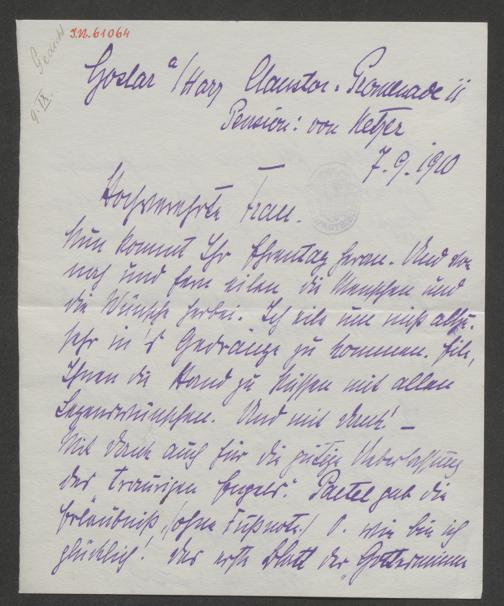 J.N. 61064
9. IX.
Goslar a/Harz Claustor-Promenade 11
Pension: von Metzer
7. 9. 1910
Hochverehrte Frau.
Nun kommt Ihr Ehrentag heran. Und von
nah und fern eilen die Menschen und
die Wünsche herbei. Ich eile um nicht allzu-
sehr in's Gedränge zu kommen. Eile,
Ihnen die Hand zu küssen mit allen
Segenswünschen. Und mit Dank! –
Mit Dank auch für die gütige Ueberlassung
des traurigen Engels". Paetel gab die
Erlaubniß, (ohne Fußnote.) O. wie bin ich
glücklich! Das erste Blatt der